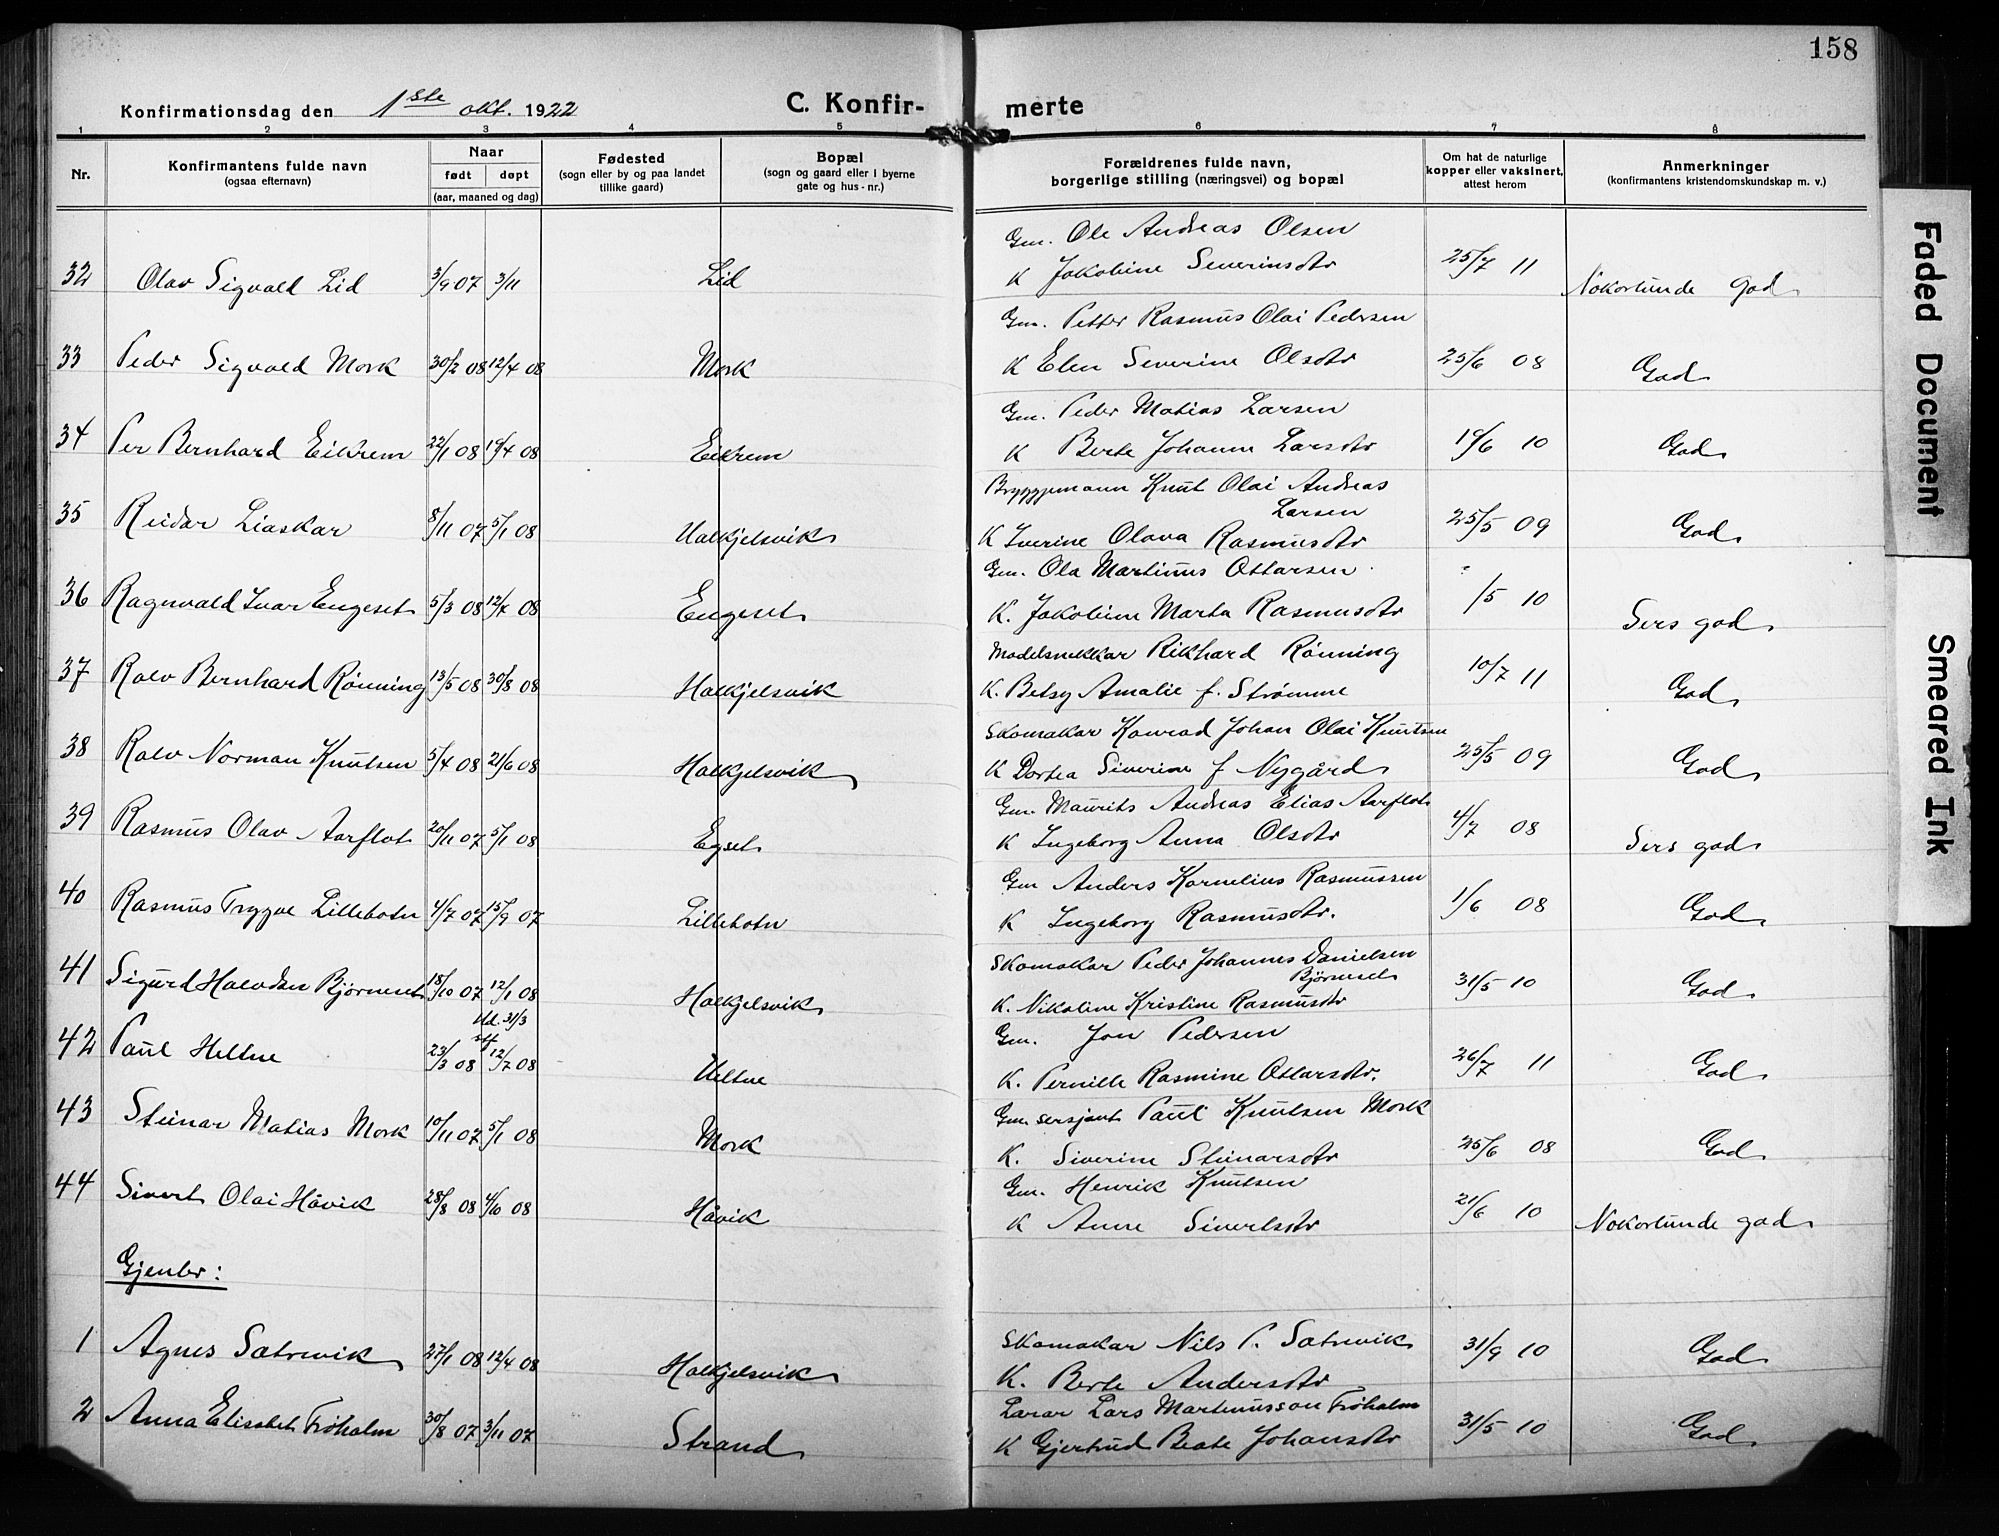 158
Konfirmationsdag den 1ste okt. 1922
C. Konfir- merte
1 2 3 4 5 6 7 8
Nr.
Konfirmantens fulde navn
(ogsaa efternavn)
Naar
født døpt
(aar, maaned og dag)
Fødested
(sogn eller by og paa landet
tillike gaard)
Bopæl
(sogn og gaard eller i byerne
gate og hus-nr.)
Forældrenes fulde navn,
borgerlige stilling (næringsvei) og bopæl
Om hat de naturlige
kopper eller vaksinert,
attest herom
Anmerkninger
(konfirmantens kristendomskundskap m. v.)
Gm. Ole Andreas Olsen
32 Olav Sigvald Lid 3/9 07 3/11 Lid K Jakobine Severinsdtr 25/7 11 Nokorlunde God
Gm. Petter Rasmus Olai Pedersen
33 Peder Sigvald Mork 30/2 08 12/4 08 Mork K Elen Severine Olsdtr 25/6 08 God
Gm. Peder Matias Larsen
34 Per Bernhard Eikrem 22/1 08 19/4 08 Eikrem K Berte Johanne Larsdtr 19/6 10 God
Bryggjemann Knut Olai Andreas
Larsen
35 Reidar Liaskar 8/11 07 5/1 08 Halkjelsvik K Iverine Olava Rasmusdtr 25/5 09 God
Gm. Ola Martinus Ottarsen
36 Ragnvald Ivar Engeset 5/3 08 12/4 08 Engeset K. Jakobine Marta Rasmusdtr ?/5 10 Sers god
Modelsnekkar Rikhard Rönning
37 Ralv Bernhard Rönning 13/5 08 30/8 08 Halkjelsvik K. Betsy Amalie f. Strömme 10/7 11 God
Skomakar Konrad Johan Olai Knutsen
38 Ralv Norman Knutsen 5/4 08 21/6 08 Halkjelsvik K Dortea Siverine f Nygård 25/5 09 God
Gm. Maurits Andreas Elias Aarflot
39 Rasmus Olav Aarflot 20/11 07 5/1 08 Egset K Ingeborg Anna Olsdtr 4/7 08 Sers god
Gm Anders Kornelius Rasmussen
40 Rasmus Trygve Lillebotn 4/7 07 15/9 07 Lillebotn K Ingeborg Rasmusdtr. 1/6 08 God
Skomakar Peder Johannes Danielsen
Bjørneset
41 Sigurd Halvdan Bjørneset 18/10 07 12/1 08 Halkjelsvik K. Nikoline Kristine Rasmusdtr 31/5 10 God
31/3
Gm. Jon Pedersen
42 Paul Heltne 23/3 08 12/7 08 Heltne K. Pernille Rasmine Ottarsdtr. 26/7 11 God
Gm. sersjant Paul Knutsen Mork
43 Steinar Matias Mork 10/11 07 5/1 08 Mork K. Siverine Steinarsdtr 25/6 08 God
Gm. Henrik Knutsen
44 Sivert Olai Håvik 28/3 08 4/6 08 Håvik K Anne Sivertsdtr 21/6 10 Nokorlunde god
Gjenter:
Skomakar Nils P. Sætrevik
1 Agnes Sætrevik 27/1 08 12/4 08 Halkjelsvik K. Berte Andersdtr 31/9 10 God
Lærar Lars Martinusson Fröholm
2 Anna Elisabet Fröholm 30/8 07 3/11 07 Strand K Gjertrud Beate Johansdtr 31/5 10 God
Faded Document
Smeared Ink